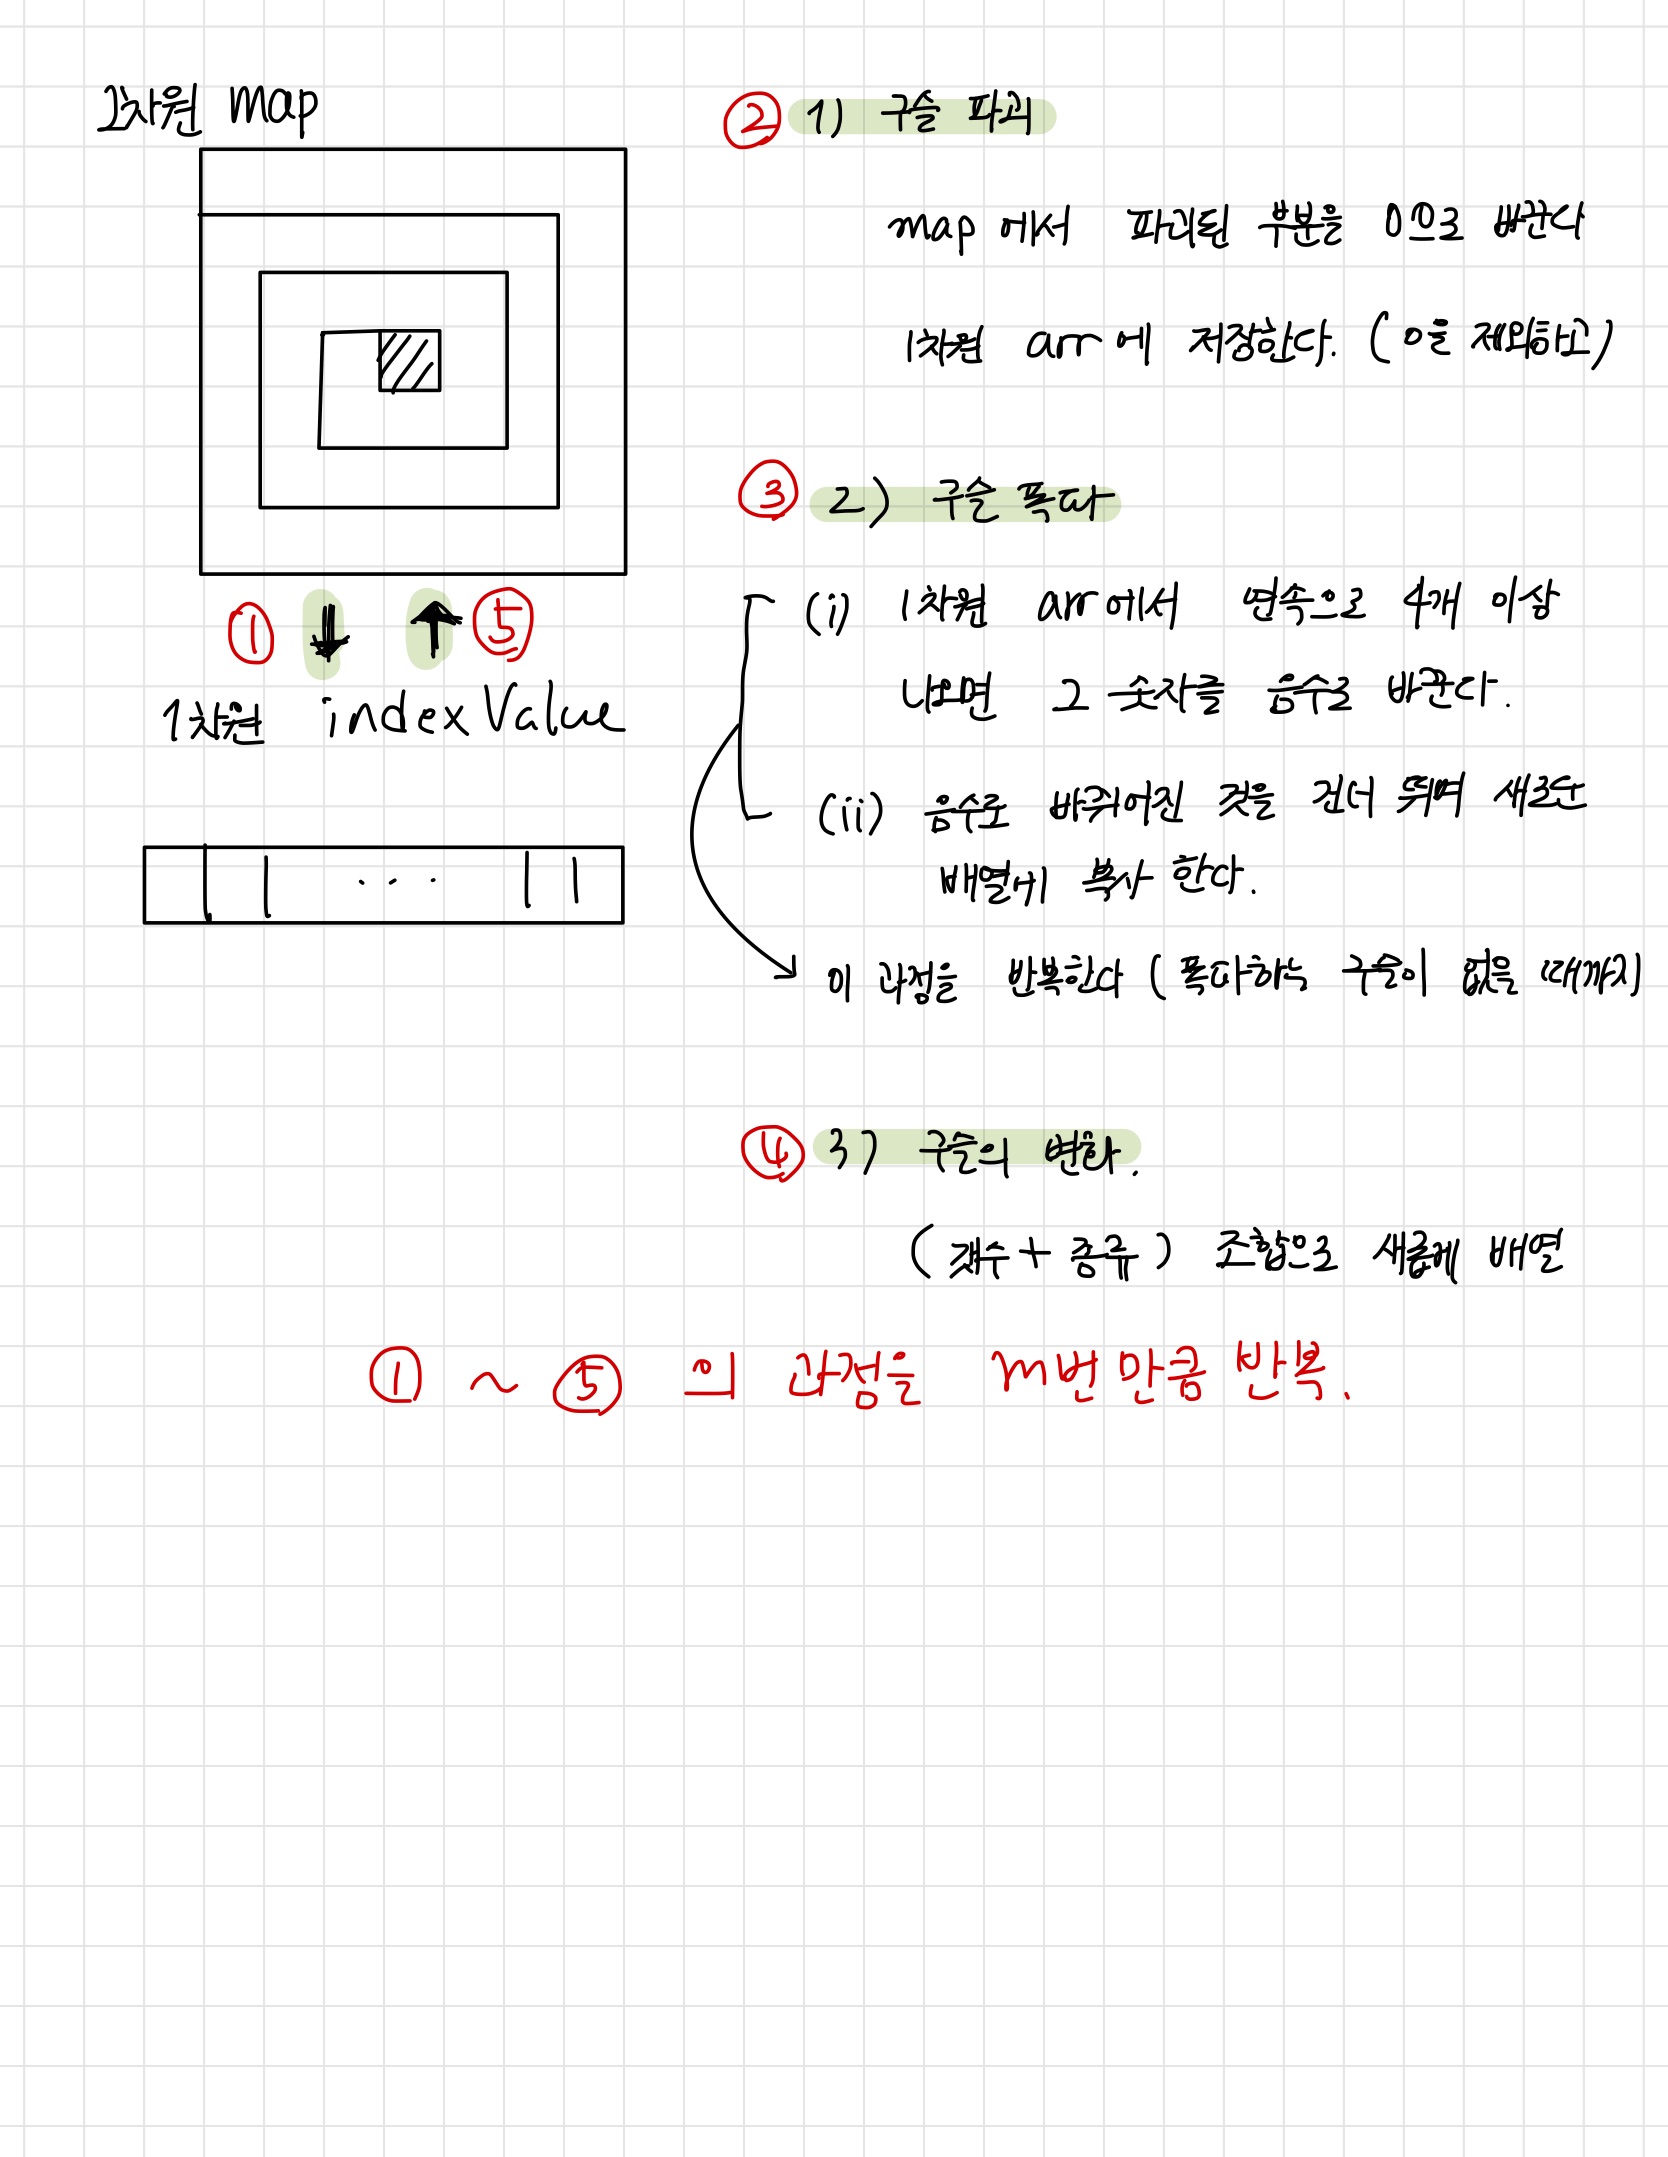 2차원 map
① ⑤
1차원 indexValue
② 1) 구슬 파괴
map 에서 파괴된 부분을 0으로 바꾼다
1차원 arr에 저장한다. (0을 제외하고)
③ 2) 구슬 폭파
(i) 1차원 arr에서 연속으로 4개 이상
나오면 그 숫자를 음수로 바꾼다.
(ii) 음수로 바뀌어진 것을 건너 뛰며 새로운
배열에 복사 한다.
이 과정을 반복한다 (폭파하는 구슬이 없을 때까지)
④ 3) 구슬의 변화.
(갯수 + 종류) 조합으로 새롭게 배열
① ~ ⑤ 의 과정을 m번 만큼 반복.